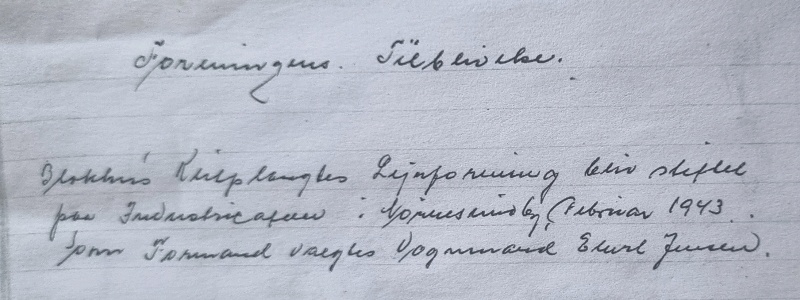 Foreningens. Tilblivelse.
Blokhus Klitplantages Lejrforening blev stiftet
paa Industricafeen i Nørresundby, Februar 1943.
som Formand valgtes Vognmand Jensen.